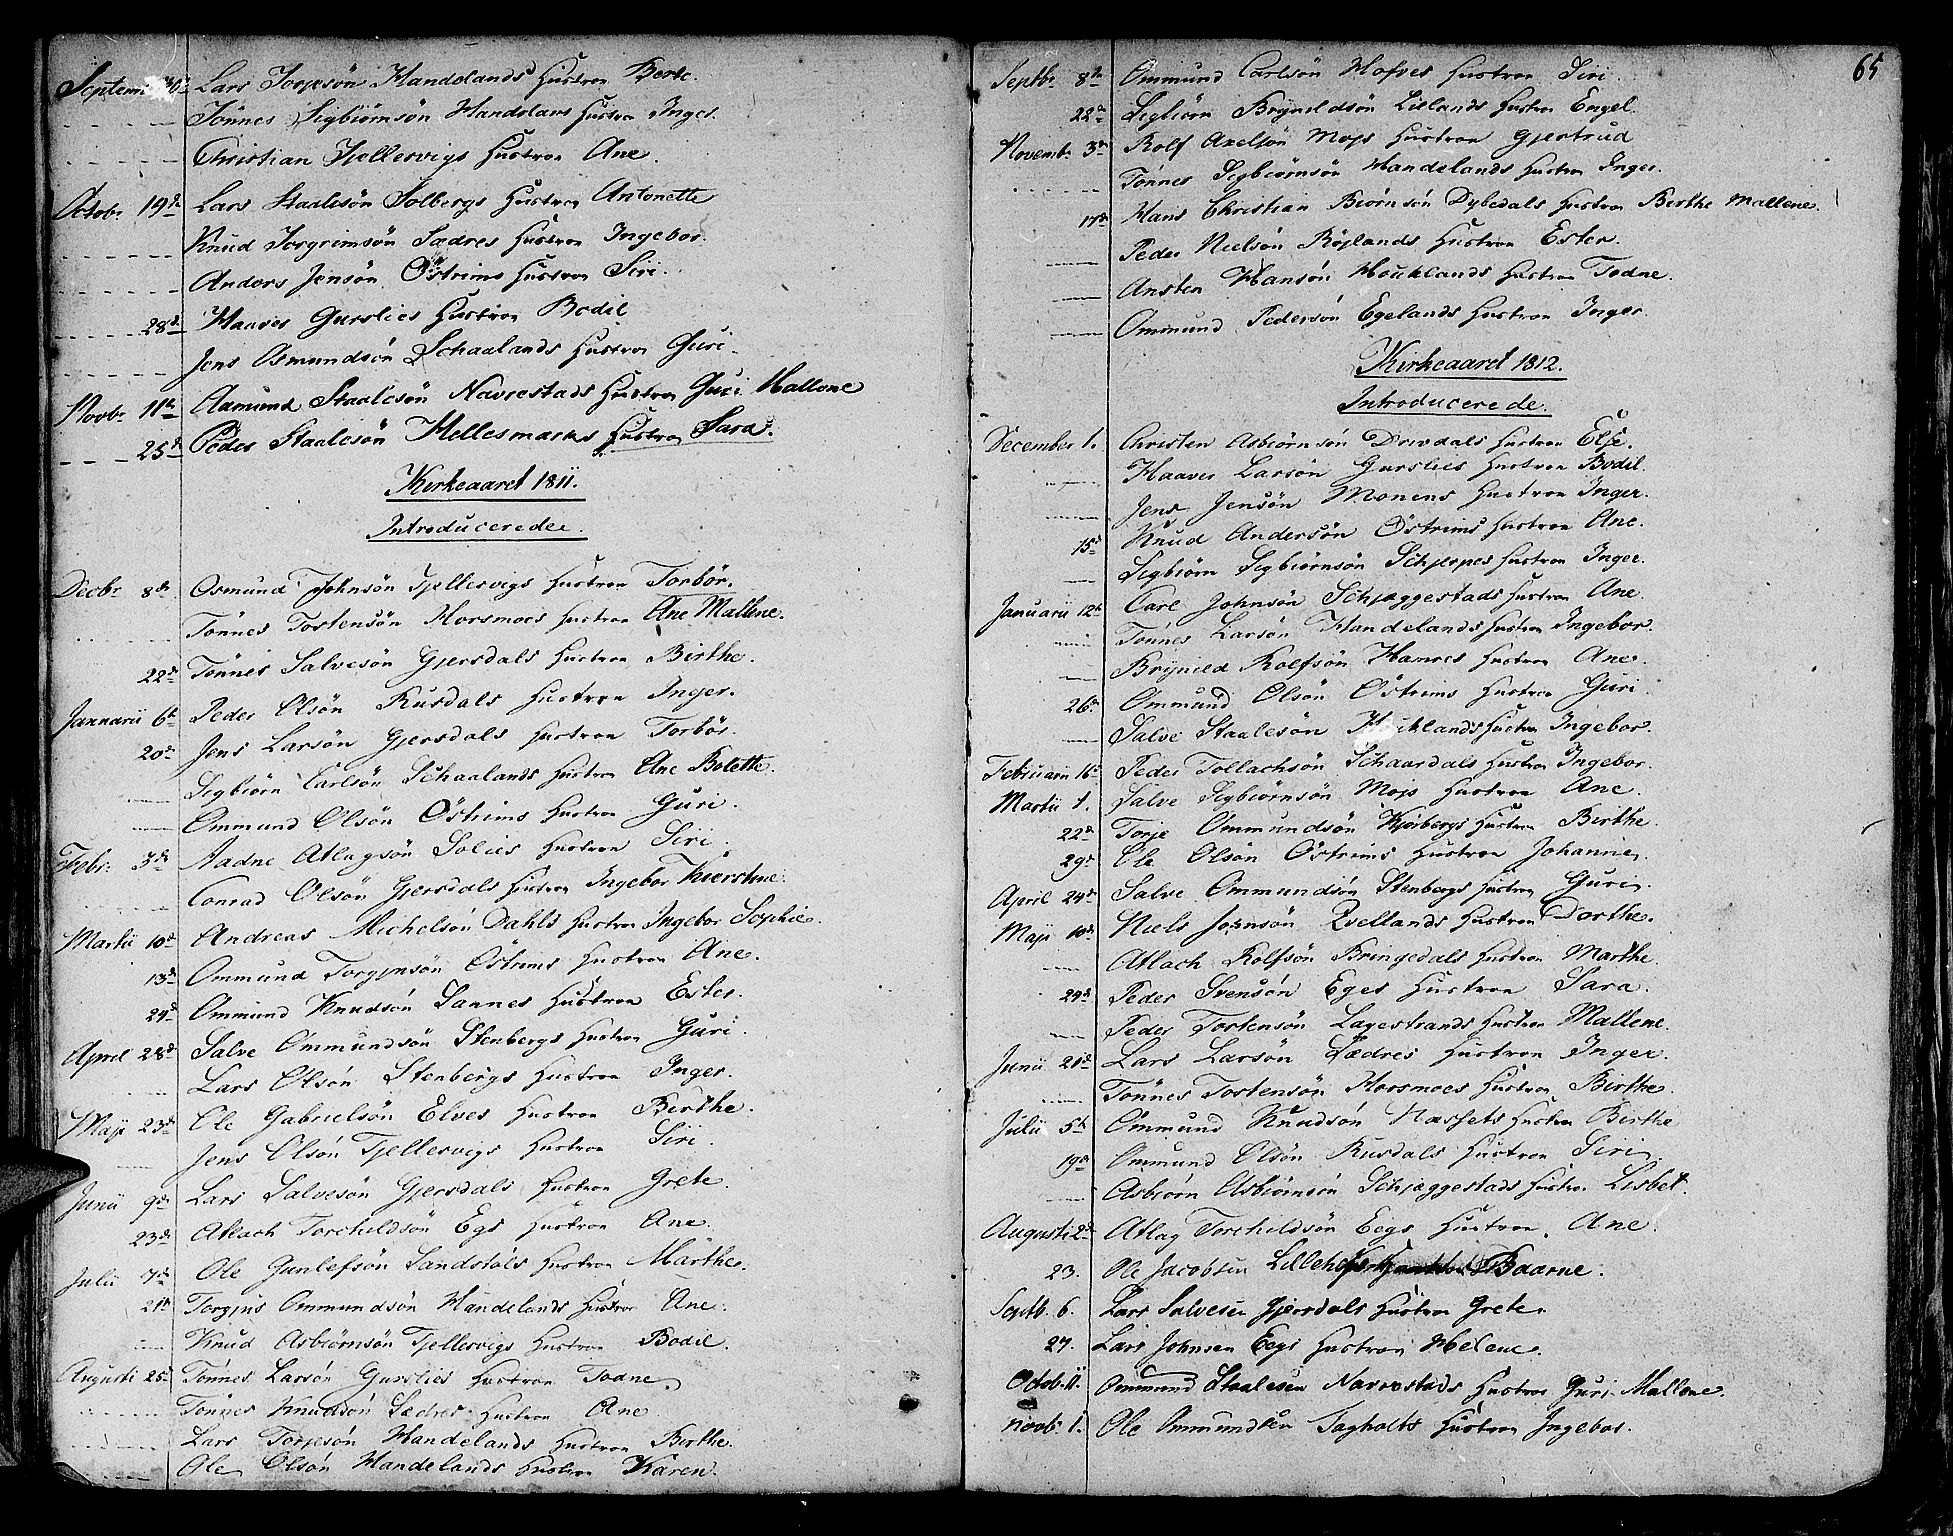 Septemb 30 Lars Torjesön Handelands Hustroe Berte.
Tönnes Sigbiörnsön Handelans Hustroe Inger.
Christian Tjellesvigs Hustroe Ane.
Octobr 19de Lars Staalesön Solbergs Hustroe Antonette
Knud Torgrimsön Sædres Hustroe Ingebor.
Anders Jensön Östrims Hustroe Siri.
28d Haaver Gurslies Hustroe Bodil
Jens Osmundsön Schaalands Hustroe Guri.
Novbr 11te Aamund Staalesön Navrestads Hustroe Guri Mallene
25d Peder Staalesön Hellesmarks Hustroe Sara.
Kirkeaaret 1811.
Introducerede.
Decbr 8de Osmund Johnsön Tjellesvigs Hustroe Torbör.
Tönnes Tostensön Horsmoes Hustroe Ane Mallene.
22de Tönnes Salvesön Gjersdals Hustroe Birthe.
Januarii 6te Peder Olsön Rusdals Hustroe Inger.
20de Jens Larsön Gjersdals Hustroe Torbör.
Sigbiörn Carlsön Schaalands Hustroe Ane Bolette.
Ommund Olsön Östrims Hustroe Guri.
Febr. 3de Aadne Atlagsön Solies Hustroe Siri.
Conrad Olsön Gjersdals Hustroe Ingebor Kierstine.
Martii 10de Andreas Michelsön Dahls Hustroe Ingebor Sophie.
13de Ommund Torgjusön Östrims Hustroe Ane.
24de Ommund Knudsön Sannes Hustroe Ester.
April 28de Salve Ommundsön Stenbergs Hustroe Guri.
Lars Olsön Stenbergs Hustroe Inger.
Maji 23de Ole Gabrielsön Elves Hustroe Berthe.
Jens Olsön Tjellesvigs Hustroe Siri.
Junii 9de Lars Salvesön Gjersdals Hustroe Grete.
23de Atlach Torchildsön Egs Hustroe Ane.
Julii 7de Ole Gunlefsön Sandstöls Hustroe Marthe.
21te Torgjus Ommundsön Handelands Hustroe Ane.
Knud Asbiörnsön Tjellesvigs Hustroe Bodil.
Augusti 25de Tönnes Larsön Gurslies Hustroe Todne.
Tönnes Knudsön Sædres Hustroe Ane.
Lars Torjesön Handelands Hustroe Birthe.
Ole Olsön Handelands Hustroe Karen.
65
Septbr 8de Ommund Carlsön Hofves Hustroe Siri.
22de Sigbiörn Brynildsön Lillands Hustroe Engel.
Novembr 3de Rolf Axelsön Mojs Hustroe Gjertrud
Tönnes Sigbiörnsön Handelands Hustroe Inger.
17de Hans Christian Biörnsön Dybedals Hustroe Berthe Mallene.
Peder Nielsön Röjlands Hustroe Ester.
Ansten Hansön Houklands Hustroe Todne.
Ommund Pedersön Egelands Hustroe Inger
Kirkeaaret 1812.
Introducerede.
December 1. Christen Asbiörnsön Drivdals Hustroe Else.
Haaver Larsön Gurslies Hustroe Bodil.
Jens Jensön Monens Hustroe Inger.
15d Knud Andersön Östrims Hustroe Ane.
Sigbiörn Sigbiörnsön Schjerpes Hustroe Inger.
Januarii 12te Carl Johnsön Schjeggestads Hustroe Ane.
Tönnes Larsön Handelands Hustroe Ingebor.
Brynild Rolfsön Hamres Hustroe Ane.
26de Ommund Olsön Östrims Hustroe Guri.
Salve Staalesön Houklands Hustroe Ingebor.
Februarii 16 Peder Tollachsön Schaardals Hustroe Ingebor.
Martii 1. Salve Sigbiörnsön Mojs Hustroe Ane.
22de Torje Ommundsön Kjörbergs Hustroe Birthe.
29de Ole Olsön Östrims Hustroe Johanne.
April 24de Salve Ommundsön Stenbergs Hustroe Guri.
Maji 10de Niels Johnsön Qvellands Hustroe Dorthe.
Atlach Rolfsön Bringedals Hustroe Marthe.
24de Peder Svensön Eges Hustroe Sara.
Peder Tostensön Lagestrands Hustroe Mallene.
Junii 21de Lars Larsön Sædres Hustroe Inger.
Tönnes Tostensön Horsmoes Hustroe Birthe.
Julii 5te Ommund Knudsön Næssets Hustroe Birthe
19de Ommund Olsön Rusdals Hustroe Siri.
Asbiörn Asbiörnsön Schjeggestads Hustroe Lisbet.
Augusti 2de Atlag Torchildsön Eegs Hustroe Ane.
23. Ole Jacobsen Baarne.
Septb. 6. Lars Salvesen Gjersdals Hustroe Grete.
27. Lars Johnsen Eegs Hustroe Helene.
Octob. 11. Ommund Staalesen Navrestads Hustroe Guri Mallene.
Novb. 1. Ole Ommundsen Fagholts Hustroe Ingebor.